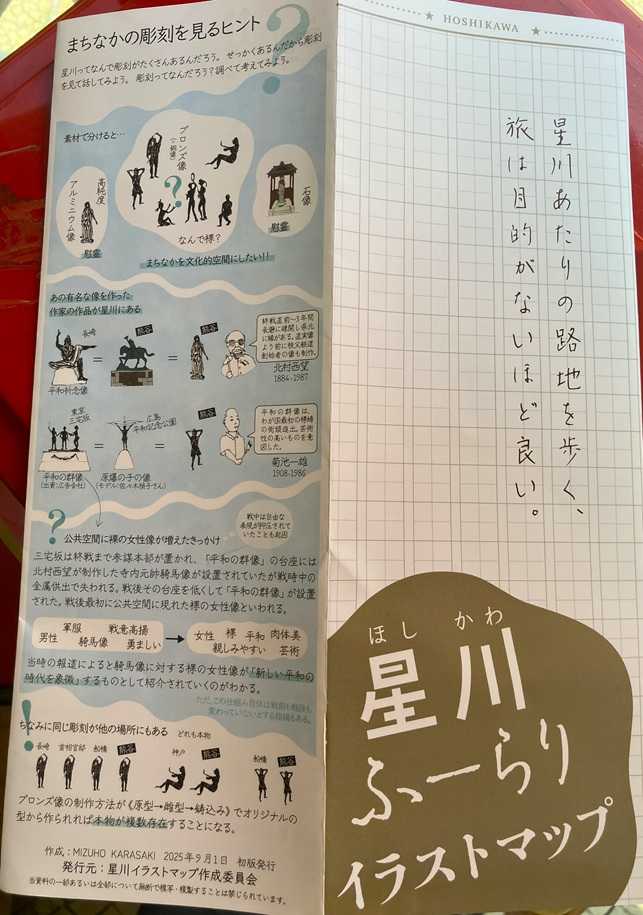 まちなかの彫刻を見るヒント
?
星川ってなんで彫刻がたくさんあるんだろう。せっかくあるんだから彫刻
を見て話してみよう。彫刻ってなんだろう?調べて考えてみよう。
素材で分けると…
高純度
アルミニウム像
慰霊
ブロンズ像
(銅像)
?
なんで裸?
石像
慰霊
まちなかを文化的空間にしたい!!
あの有名な像を作った
作家の作品が星川にある
長崎
平和祈念像
=
熊谷
=
熊谷
終戦直前~3年間
長瀞に疎開し県北
に縁がある。
前に秩父鉄道
創始者の像も制作。
北村西望
1884-1987
東京
三宅坂
平和の群像
(出資:広告会社)
=
広島
平和記念公園
原爆の子の像
(モデル:佐々木禎子さん)
=
熊谷
平和の群像は、
わが国最初の裸婦
の街頭進出。芸術
性の高いものを意
図した。
菊池一雄
1908-1985
?
公共空間に裸の女性像が増えたきっかけ
戦中は自由な
表現が抑圧されて
いたことも起因
三宅坂は終戦まで参謀本部が置かれ、「平和の群像」の台座には
北村西望が制作した寺内元帥騎馬像が設置されていたが戦時中の
金属供出で失われる。戦後その台座を低くして「平和の群像」が設
置された。戦後最初に公共空間に現れた裸の女性像といわれる。
軍服 戦意高揚
男性 騎馬像 勇ましい
→
女性 裸 平和 肉体美
親しみやすい 芸術
当時の報道によると騎馬像に対する裸の女性像が「新しい平和の
時代を象徴」するものとして紹介されていくのがわかる。
ただ、この仕組み自体は戦前も戦後も
変わっていないとする指摘もある。
!
ちなみに同じ彫刻が他の場所にもある どれも本物
長崎 首相官邸 船橋 熊谷
神戸 熊谷
船橋 熊谷
ブロンズ像の制作方法が《原型→雌型→鋳込み》でオリジナルの
型から作られれば本物が複数存在することになる。
作成:MIZUHO KARASAKI 2025年9月1日 初版発行
発行元:星川イラストマップ作成委員会
当資料の一部あるいは全部について無断で複写・複製することは禁じられています。
★ HOSHIKAWA ★
星川あたりの路地を歩く、
旅は目的がないほど良い。
ほし かわ
星川
ふーらり
イラストマップ